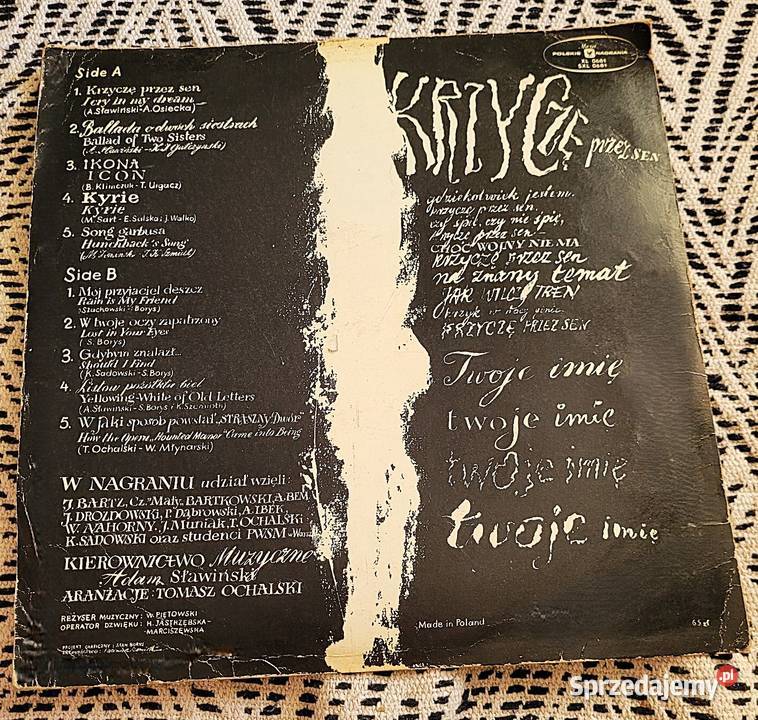 Side A
1. Krzyczę przez sen
I cry in my dream
(A.Sławiński-A.Osiecka)
2. Ballada o dwóch siostrach
Ballad of Two Sisters
3. IKONA
ICON
(B. Klimczuk - T. Urgacz)
4. Kyrie
Kyrie
(M. Sart - E. Sulska; J. Walko)
5. Song garbusa
Hunchback's Song
Side B
1. Mój przyjaciel deszcz
Rain is My Friend
(Słuchowski - Borys)
2. W twoje oczy zapatrzony
Lost in Your Eyes
(S. Borys)
3. Gdybym znalazł...
Should I Find
(K. Sadowski - S. Borys)
4. Listów pożółkła biel
Yellowing-White of Old Letters
(A. Sławiński - S. Borys i K. Szemioth)
5. W jaki sposób powstał „STRASZNY Dwór"
How the Opera „Haunted Manor" Came into Being
(T. Ochalski - W. Młynarski)
W NAGRANIU udział wzięli:
J. BARTZ, Cz. "Mały" BARTKOWSKI, A. BEM
J. DROZDOWSKI, P. Dąbrowski, A. IBEK,
W. NAHORNY, J. Muniak, T. OCHALSKI
K. SADOWSKI oraz studenci PWSM
KIEROWNICTWO Muzyczne
Adam Sławiński
ARANŻACJE: TOMASZ OCHALSKI
REŻYSER MUZYCZNY: W. PIĘTOWSKI
OPERATOR DŹWIĘKU: H. JASTRZĘBSKA-
MARCISZEWSKA
PROJEKT GRAFICZNY: STAN BORYS
Muza
POLSKIE NAGRANIA
XL 0681
SXL 0681
KRZYCZĘ przez SEN
gdziekolwiek jestem
krzyczę przez sen.
czy śpię, czy nie śpię,
krzyczę przez sen -
CHOĆ WOJNY NIE MA
KRZYCZĘ PRZEZ SEN
na znany temat
JAK WILCZY TREN
KRZYCZĘ PRZEZ SEN
Twoje imię
twoje imię
twoje imię
twoje imię
Made in Poland
65 zł
Sprzedajemy.pl